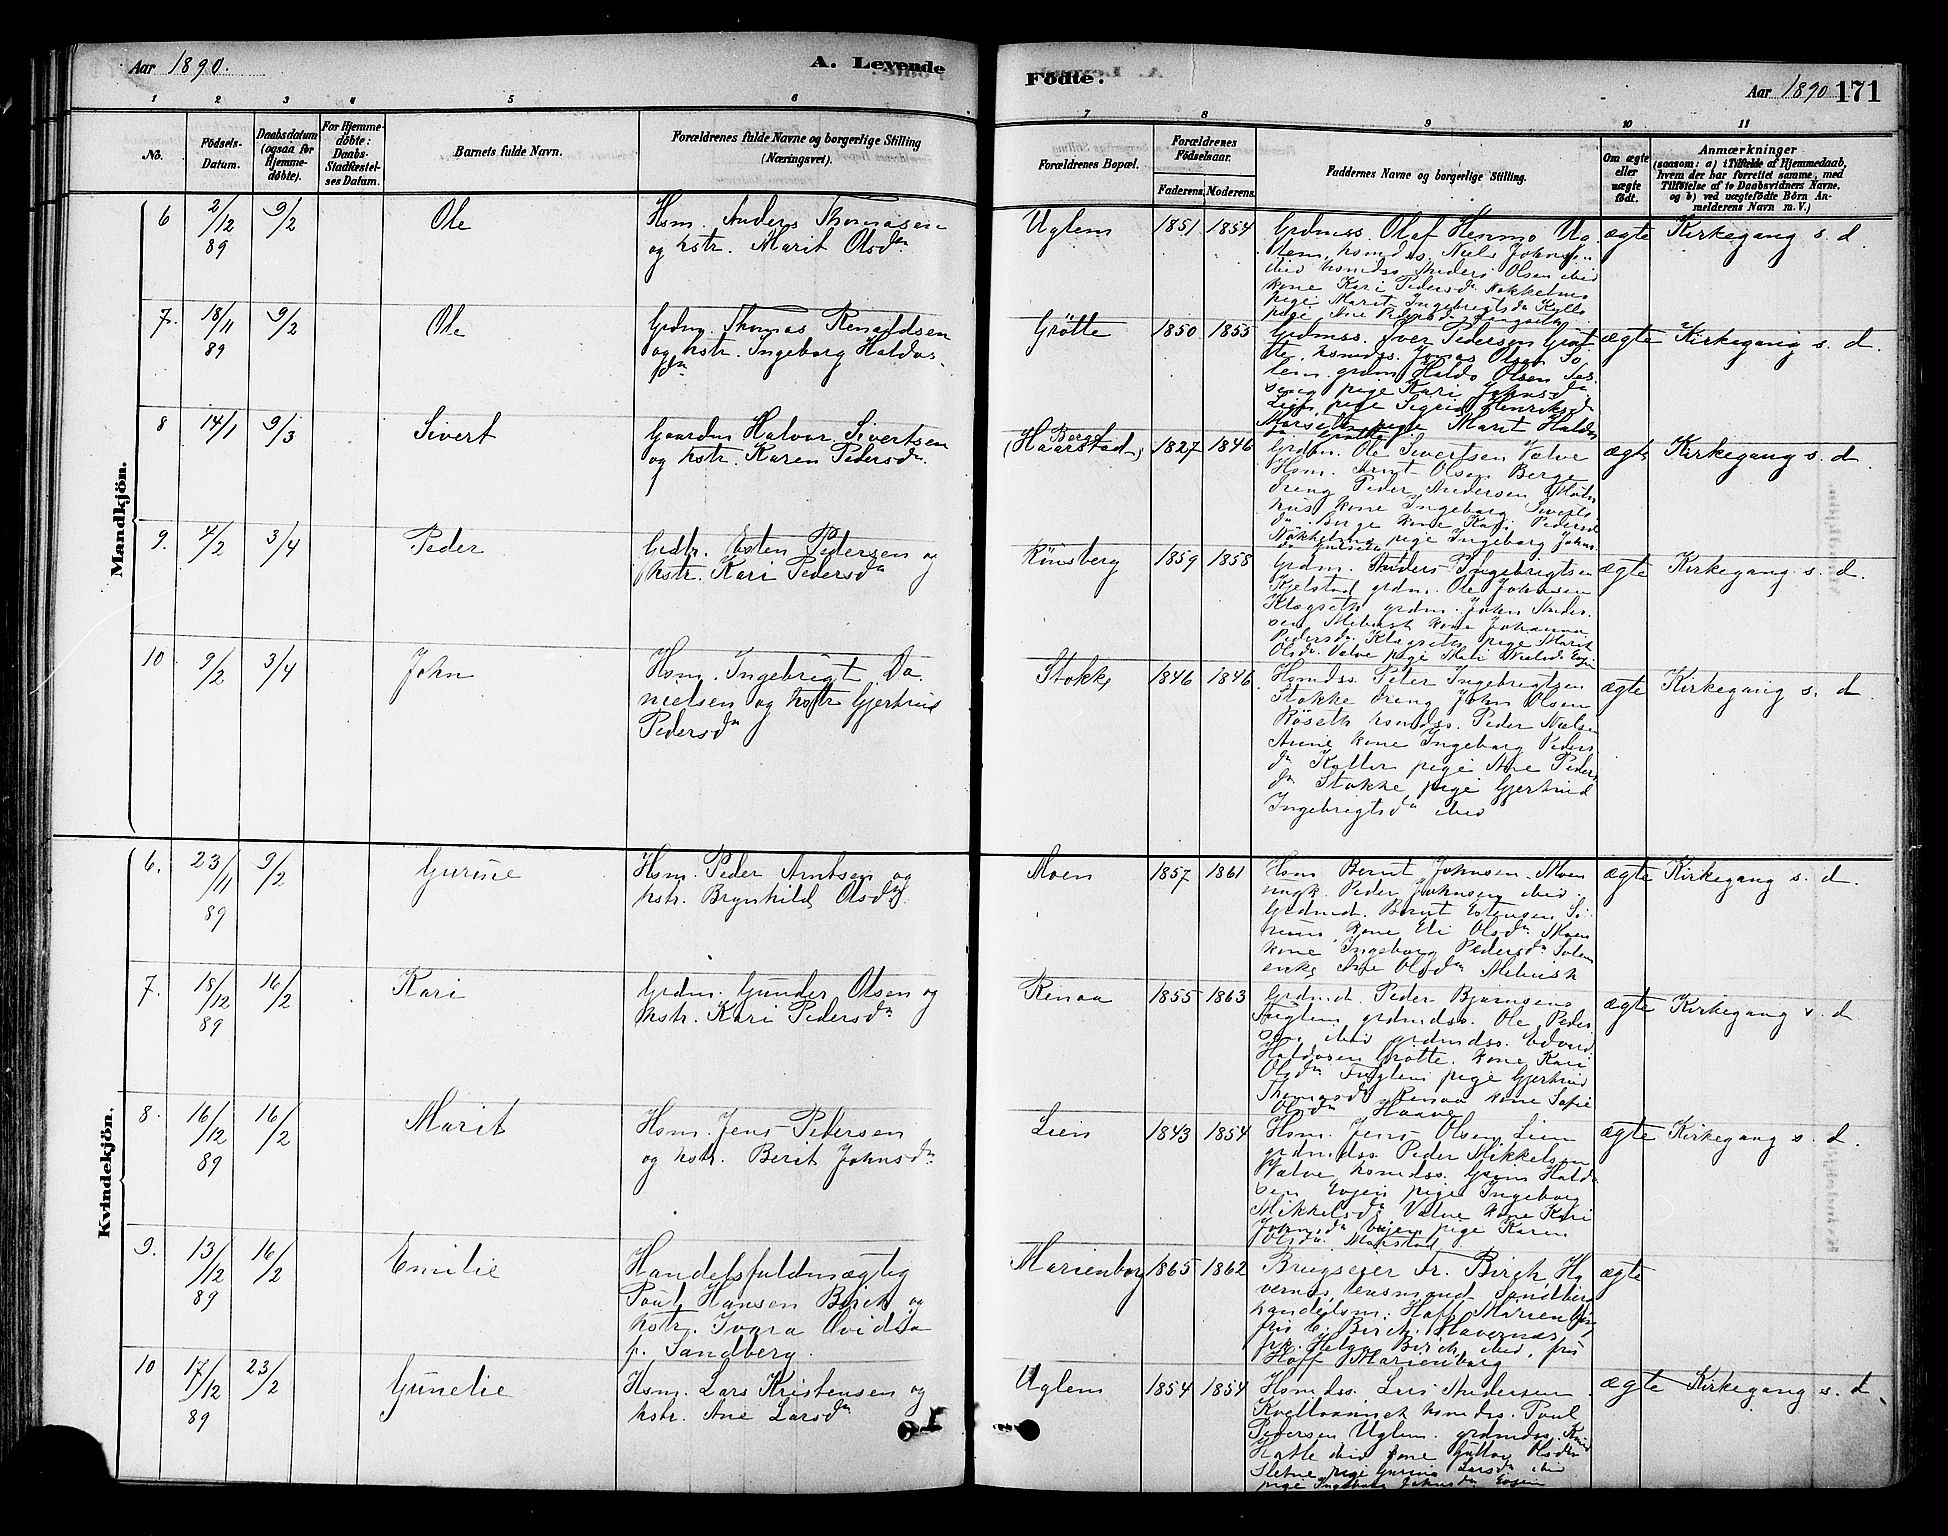 Aar 1890.
A. Levende
Fødte.
Aar 1890
171
1 2 3 4 5 6
7 8 9 10 11
No.
Fødsels-Datum.
Daabsdatum (ogsaa for Hjemme-døbte).
For Hjemme-døbte: Daabs-Stadfæstel-ses Datum.
Barnets fulde Navn.
Forældrenes fulde Navne og borgerlige Stilling (Næringsvei).
Forældrenes Bopæl.
Forældrenes Fødselsaar.
Faderens. Moderens.
Faddernes Navne og borgerlige Stilling.
Om ægte eller uægte født.
Anmærkninger
(saasom: a) i Tilfælde af Hjemmedaab,
hvem der har forrettet samme, med
Tilføielse af to Daabsvidners Navne.
og b) ved uægtefødte Børn An-
melderens Navn m. V.)
Mandkjøn.
6 2/12 89 9/2 Ole
Hsm. Anders Thomasen
og hstr. Marit Olsdn
Uglem 1851 1854
Grdmss. Olaf Hermo Ug
lem, hsmdss. Niels Johnsen
ibid hsmdss Anders Olsen ibid
kone Kari Pedersdn Nokkelmo
pige Marit Ingebrigtsdn Kyllo
ægte Kirkegang s. d.
7. 18/11 89 9/2 Ole
Grdm. Thomas Renaldsen
og hstr. Ingeborg Haldos
dn
Grøtte 1850 1855
Grdmss. Iver Pedersen Grøt
te, hsmdss. Jonas Olsen So
lem grdm Haldo Olsen
pige Kari Johnsdn
pige Sigrid Henriksd
pige Marit Haldos
ægte Kirkegang s. d.
8 14/1 9/3 Sivert
Gaardm Halvor Sivertsen
og hstr. Karen Pedersdn.
Berge
(Haarstad) 1827 1846
Grdm. Ole Sivertsen Valve
Hsm. Arnt Olsen Berge
dreng Peder Andersen
hus kone Ingeborg Siverts
dn. Berge kone Kari Pedersd
Nokkelmo pige Ingeborg Johns
ægte Kirkegang s. d.
9. 4/2 3/4 Peder
Grdbr. Esten Pedersen og
hstr. Kari Pedersdn
Rønsberg 1859 1858
Grdm. Anders Ingebrigtsen
Kjelstad grdm. Ole Johnsen
Klegseth grdm. John Anders
sen kone Johanna
Pedersdn. Klegseth pige Marit
Olsdn. Valve pige
ægte Kirkegang s. d.
10 9/2 3/4 John
Hsm. Ingebrigt Da
nielsen og hstr Gjertrud
Pedersdn
Stokke 1846 1846
Hsmdss. Peter Ingebrigtsen
Stokke dreng John Olsen
Røseth hsmdss. Peder Nielsen
kone Ingeborg Peders
dn pige Ane Peders
dn Stokke pige Gjertrud
Ingebrigtsdn ibid
ægte Kirkegang s. d.
Kvindekjøn.
6. 23/11 89 9/2 Gurine
Hsm. Peder Arntsen og
hstr. Brynhild Olsdn.
Moen 1857 1861
Hsm Bernt Johnsen. Moen
ungk. Peder Johnsen ibid.
Grdmd. Bernt Estensen
kone Eli Olsdn Moen
kone Ingeborg Pedersdn Solem
enke Ane Olsdn
ægte Kirkegang s. d.
7. 18/12 89 16/2 Kari
Grdm. Gunder Olsen og
hstr. Kari Pedersdn
Renaa 1855 1863
Grdmd. Peder Bjørnsen
Fuglem grdmdss. Ole Peder
sen ibid grdmdss. Edvard
Haldosen Grøtte. kone Kari
Olsdn Fuglem pige Gjertrud
Thomasdn Renaa kone Sofie
Olsdn Haave
ægte Kirkegang s. d.
8. 16/12 89 16/2 Marit
Hsm. Jens Pedersen
og hstr. Berit Johnsdn.
Lien 1843 1854
Hsm. Jens Olsen Lien
grdmdss Peder Mikkelsen
Valve hsmdss. Haldo
sen Evjen pige Ingeborg
Mikkelsdn Valve kone Kari
Johnsdn Evjen pige Karen
Olsdn.
ægte Kirkegang s. d.
9. 13/12 89 16/2 Emilie
Handelsfuldmægtig
Poul Hansen Birch og
hstr. Ivara Ovidia
f. Sandberg.
Marienborg 1865 1862
Brugseier Fr. Birch
lensmand Sandberg
handelsm. Hoff Marienborg
fru C. Birch Havernæs,
frk. Helga Birch, ibid, fru
Hoff Marienborg
ægte
10 17/12 89 23/2 Gunelie
Hsm. Lars Kristensen og
hstr. Ane Larsdn
Uglem 1854 1854
Hsmdss. Lars Andersen
hsmdss. Poul
Pedersen Uglem. grdmdss.
ibid kone Olsdn
pige Gurine Larsdn ibid
pige Ingeborg Johnsdn Evjen
ægte Kirkegang s. d.